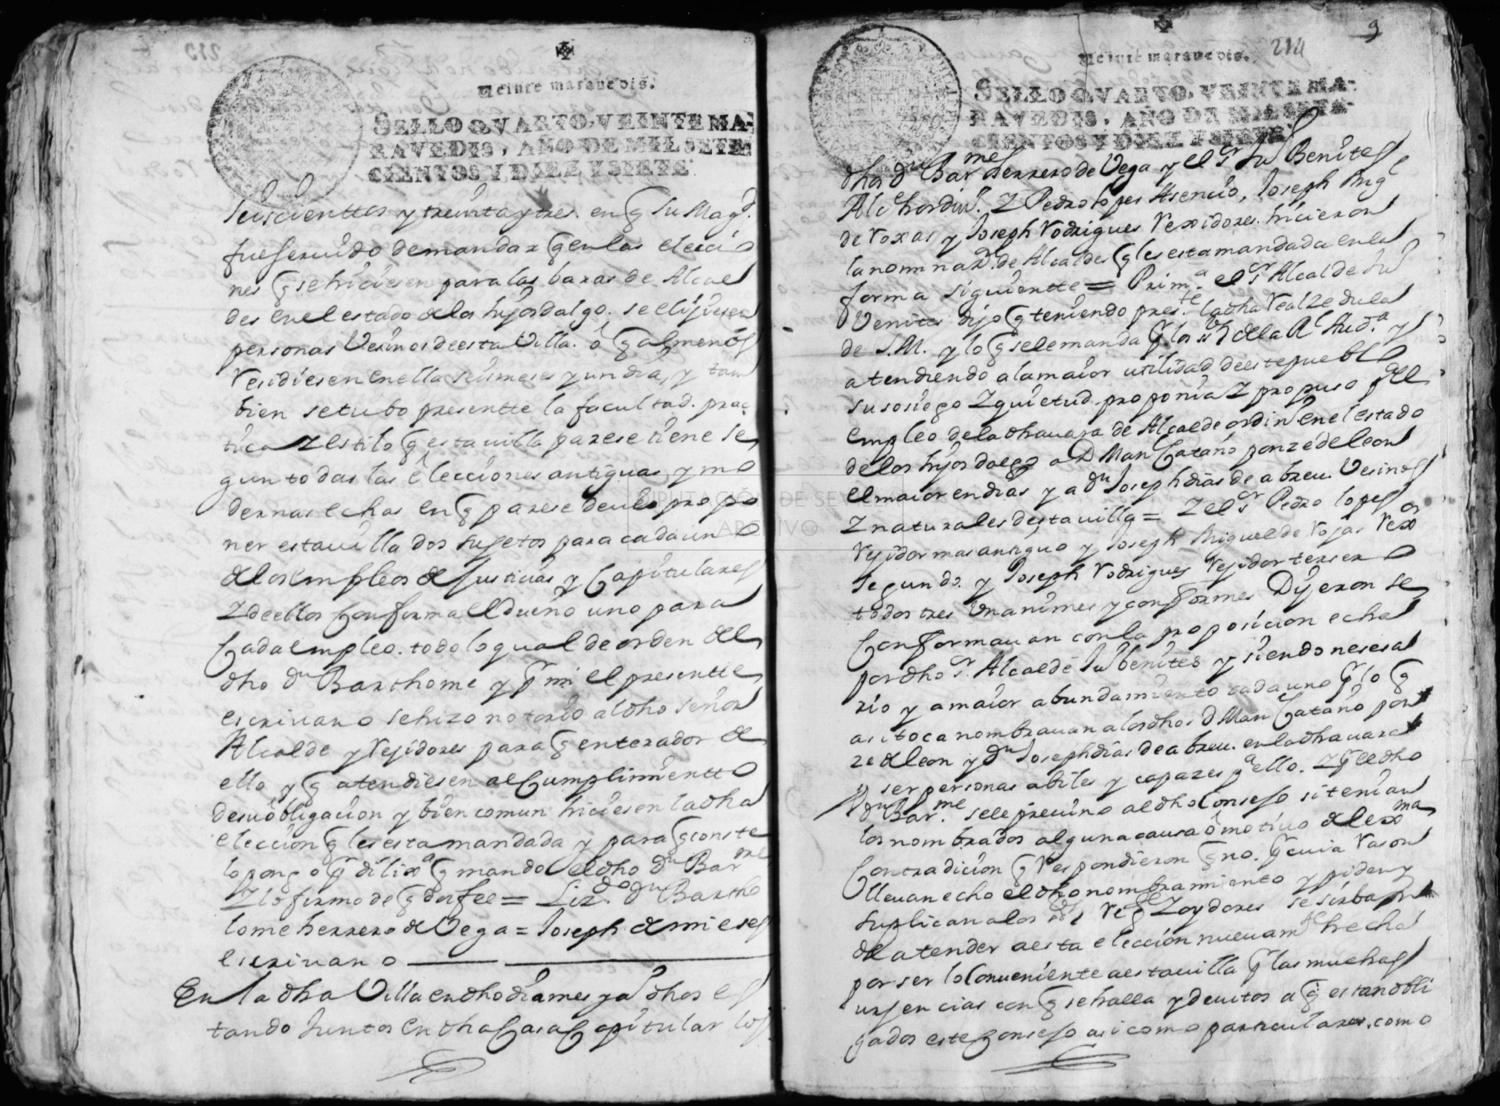 Veinte maravedis.
SELLO QVARTO, VEINTE MA-
RAVEDIS, AÑO DE MIL SETE-
CIENTOS Y DIEZ Y SIETE.
seiscienttos y treinta y tres. en q Su Magd.
fue servido de mandar q en las elecio
nes q se hiciesen para las baras de Alcal
des en el estado de los hijosdalgo. se elijiesen
personas Vezinos de esta Villa. o q a lo menos
Residiesen en ella seis meses y un dia, y tam
bien se tubo presentte la facultad. prac
tica z estilo q esta villa parese tiene se
gun todas las elecciones antiguas y mo
dernas echas en q parese deue propo
ner esta villa dos sujetos para cada uno
de los empleos de Justicias y Capitulares
z de ellos conforma el dueño uno para
Cada empleo. todo lo qual de orden del
dho dn Barthome y pr mi el presentte
escriuano se hizo notorio al dho señor
Alcalde y Rejidores para q enterados de
ello y q atendiesen al Cumplimientto
de su obligacion y bien comun hiciesen la dha
eleccion q les esta mandada y para q conste
lo pongo pr dilixa q mando el dho dn Barme
z lo firmo de q doi fee = Lizdo. dn Bartho
lome herrero de Vega = Joseph de
escriuano
En la dha Villa en dho dia mes y año dhos es
tando Juntos en dhas Casas Capitular los
214
9
Veinte maravedis.
SELLO QVARTO, VEINTE MA-
RAVEDIS, AÑO DE MIL SETE-
CIENTOS Y DIEZ Y SIETE.
dho dn Barme herrero de Vega y el sr Ju Benites
Alce hordino. z Pedro lopes Asencio, Joseph Migl
de Roxas y Joseph Rodrigues Rexidores. hicieron
la nominazn. de Alcaldes q les esta mandada en la
forma siguientte = Prima. el sr Alcalde Ju
Venites dijo q teniendo preste. la dha Real Zedula
de S.M. y lo q se le manda pr los ss de la Rl Auda. y
atendiendo a la maior utilidad de este pueblo
su sosiego z quietud. proponia z propuso pa el
empleo de la dha uara de Alcalde ordino en el estado
de los hijosdalgo a Dn Manl Cataño ponze de leon
el maior en dias y a dn Joseph dias de abreu. Vesinos
z naturales desta villa = z el sr Pedro lopes
Rejidor mas antiguo y Joseph Miguel de Rojas Rexor
segundo. y Joseph Rodrigues Rejidor tersero
todos tres Unanimes y conformes Dijeron se
Conformauan con la proposicion echa
por dho sr. Alcalde Ju benites y siendo nesesa
rio y a maior abundamiento cada uno pr lo q
asi toca nombrauan a los dhos Dn Manl Cataño pon
ze de leon y dn Joseph dias de abreu. en la dha uara
y ser personas abiles y capazes pa ello. z pr el dho
dn Barme se le preuino al dho Consejo si tenian
los nombrados alguna causa o motiuo de lexma
Contradicion q Respondieron q no. pr cuia Rason
lleuan echo el dho nombramiento y piden y
suplican a los sres Rege z oydores se sirban
de atender a esta eleccion nueuamte hecha
por ser lo Conueniente a esta villa pr las muchas
urjencias con q se halla y deuitos a q estan obli
gados este Consejo asi como particulares. como